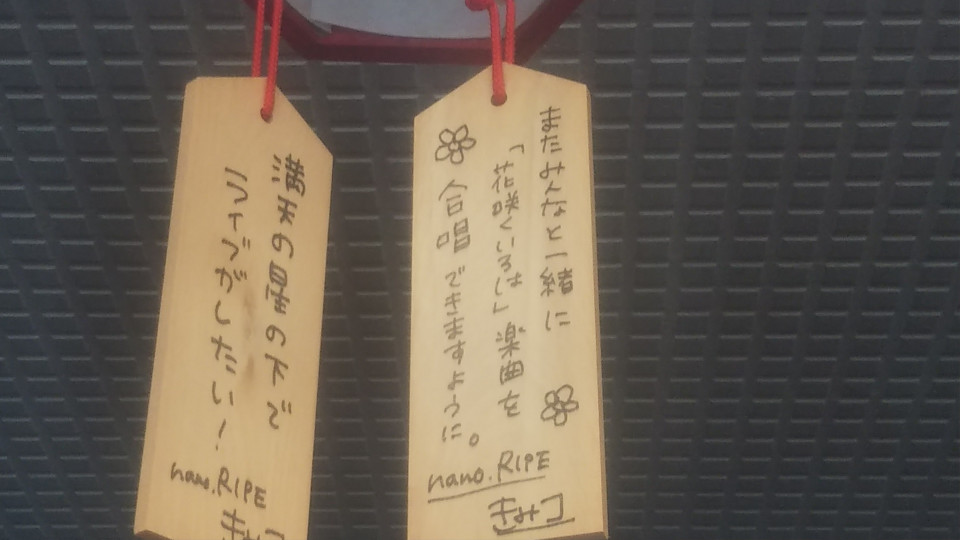 満天の星の下で
ライブがしたい！
nano.RIPE
きみコ
まだみんなと一緒に
「花咲くいろは」楽曲を
合唱できますように。
nano.RIPE
きみコ